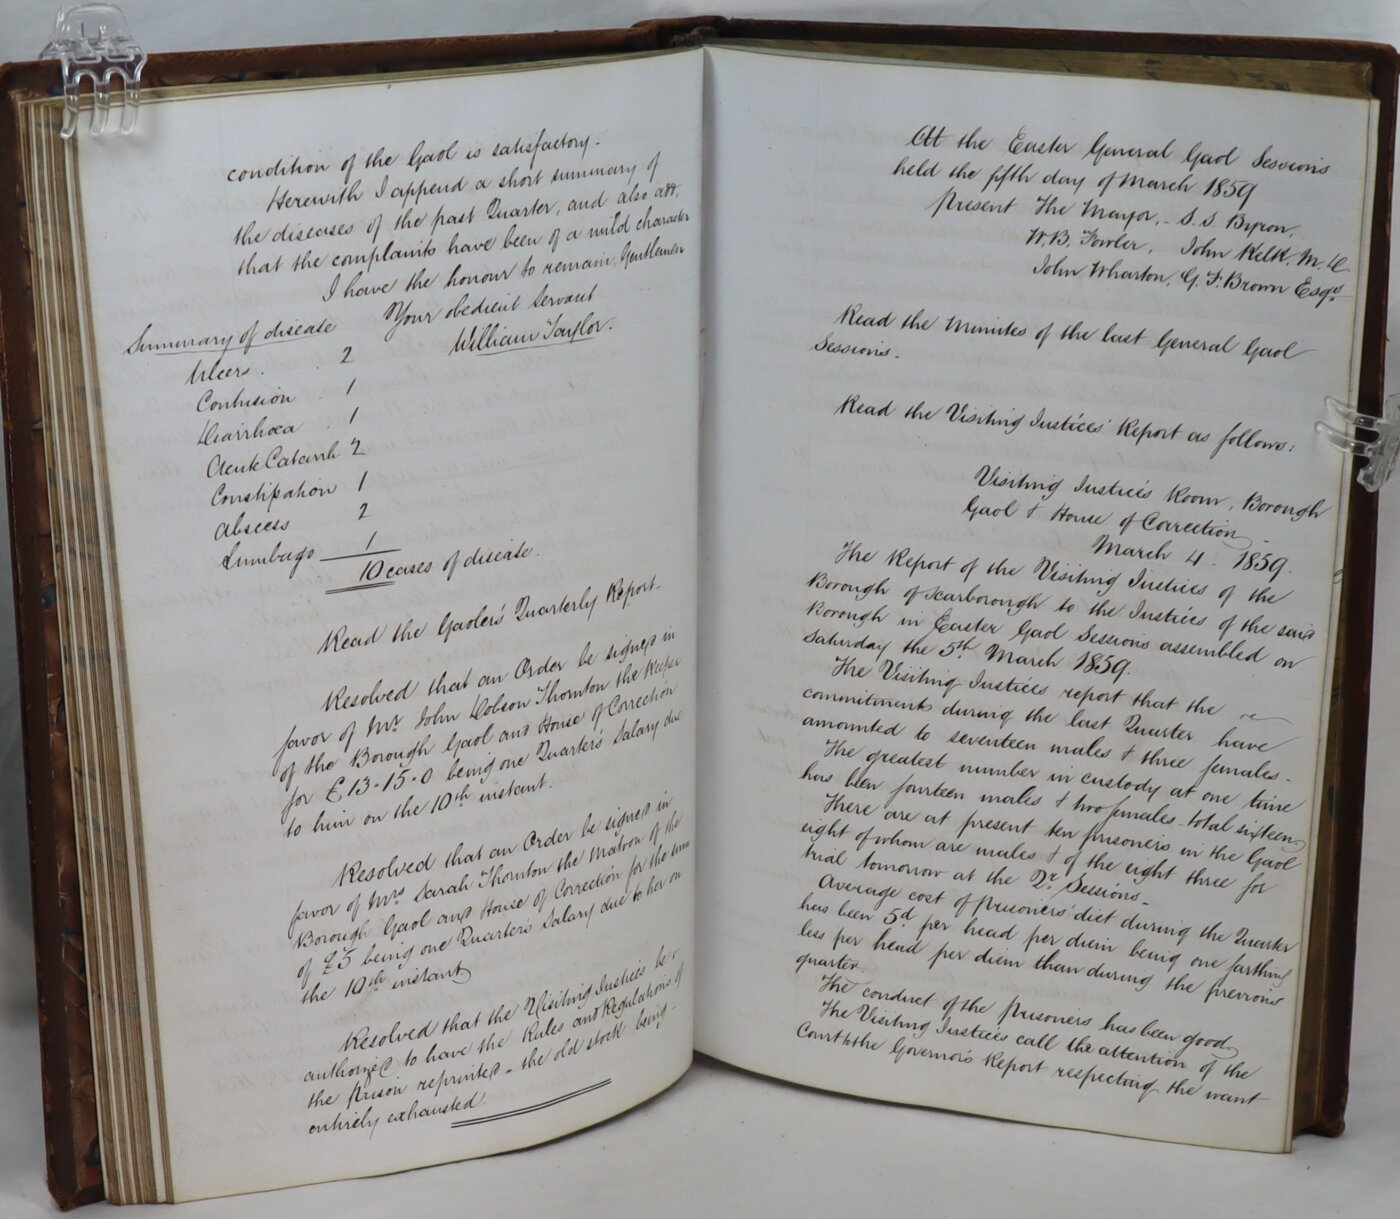 condition of the Gaol is satisfactory.
Herewith I append a short summary of
the diseases of the past Quarter, and also add,
that the complaints have been of a mild character
I have the honour to remain, Gentlemen
Your obedient Servant
William Taylor.
Summary of disease
Ulcers . . 2
Contusion . 1
Diarrhoea . 1
Acute Catarrh 2
Constipation 1
Abscess 2
Lumbago 1
10 cases of disease.
Read the Gaoler's Quarterly Report.
Resolved that an Order be signed in
favor of Mr. John Dobson Thornton the Keeper
of the Borough Gaol and House of Correction
for £13-15-0 being one Quarter's Salary due
to him on the 10th instant.
Resolved that an Order be signed in
favor of Mrs Sarah Thornton the Matron of the
Borough Gaol and House of Correction for the sum
of £5 being one Quarter's Salary due to her on
the 10th instant
Resolved that the Visiting Justices be
authorized to have the Rules and Regulations of
the Prison reprinted - the old stock being
entirely exhausted
At the Easter General Gaol Sessions
held the fifth day of March 1859
Present The Mayor, - S. S. Byron,
W. B. Fowler, John Kelk, M. C.
John Wharton, G. F. Brown Esqrs.
Read the Minutes of the last General Gaol
Sessions.
Read the Visiting Justices' Report as follows:
Visiting Justices Room, Borough
Gaol & House of Correction
March 4 - 1859.
The Report of the Visiting Justices of the
Borough of Scarborough to the Justices of the said
Borough in Easter Gaol Sessions assembled on
Saturday the 5th March 1859.
The Visiting Justices report that the
commitments during the last Quarter have
amounted to seventeen males & three females.
The greatest number in custody at one time
has been fourteen males & two females - total sixteen
There are at present ten prisoners in the Gaol
eight of whom are males & of the eight three for
trial tomorrow at the Qr. Sessions.
Average cost of prisoners' diet during the Quarter
has been 5d per head per diem being one farthing
less per head per diem than during the previous
quarter.
The conduct of the prisoners has been good
The Visiting Justices call the attention of the
Court to the Governor's Report respecting the want